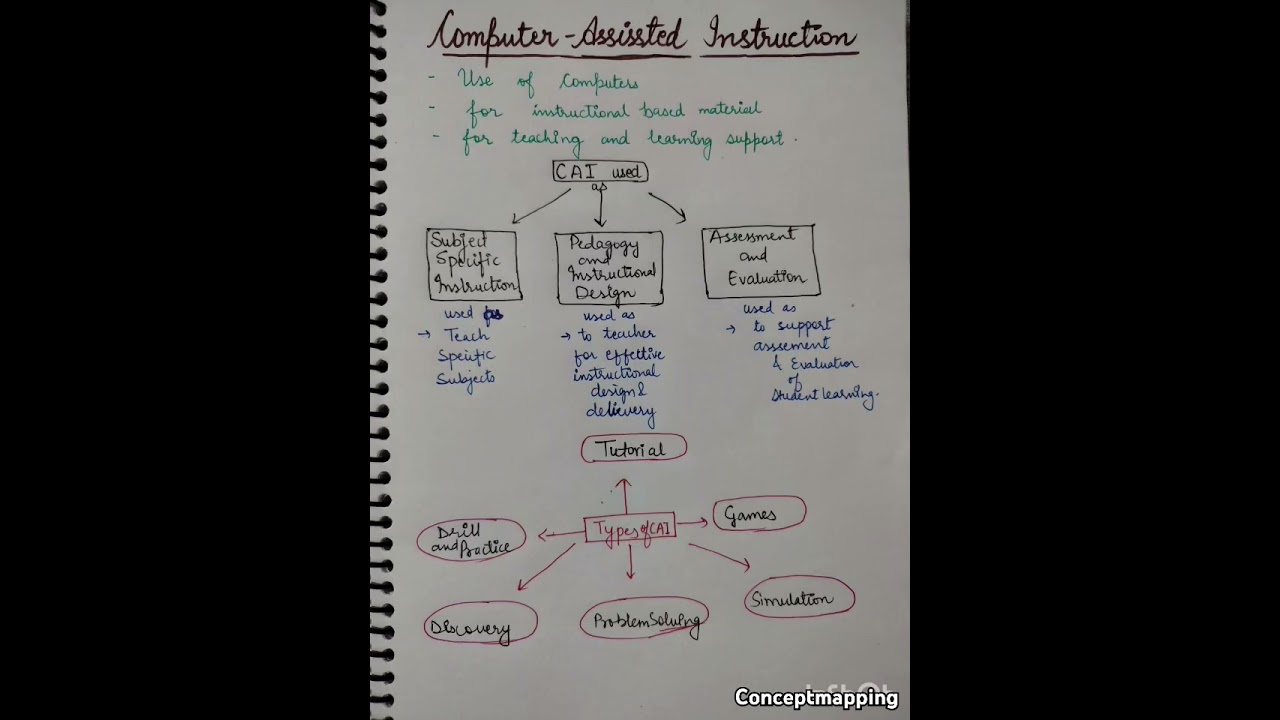 Computer-Assissted Instruction
- Use of Computers
- for instructional based material
- for teaching and learning support.
CAI used
as
Subject
Specific
Instruction
used as
→ Teach
Specific
Subjects
Pedagogy
and
Instructional
Design
used as
→ to teacher
for effective
instructional
design &
delievery
Assessment
and
Evaluation
used as
→ to support
asssement
& Evaluation
of
Student learning.
Tutorial
Types of CAI
Games
Drill
and Practice
Simulation
Discovery
Problem Solving
Conceptmapping